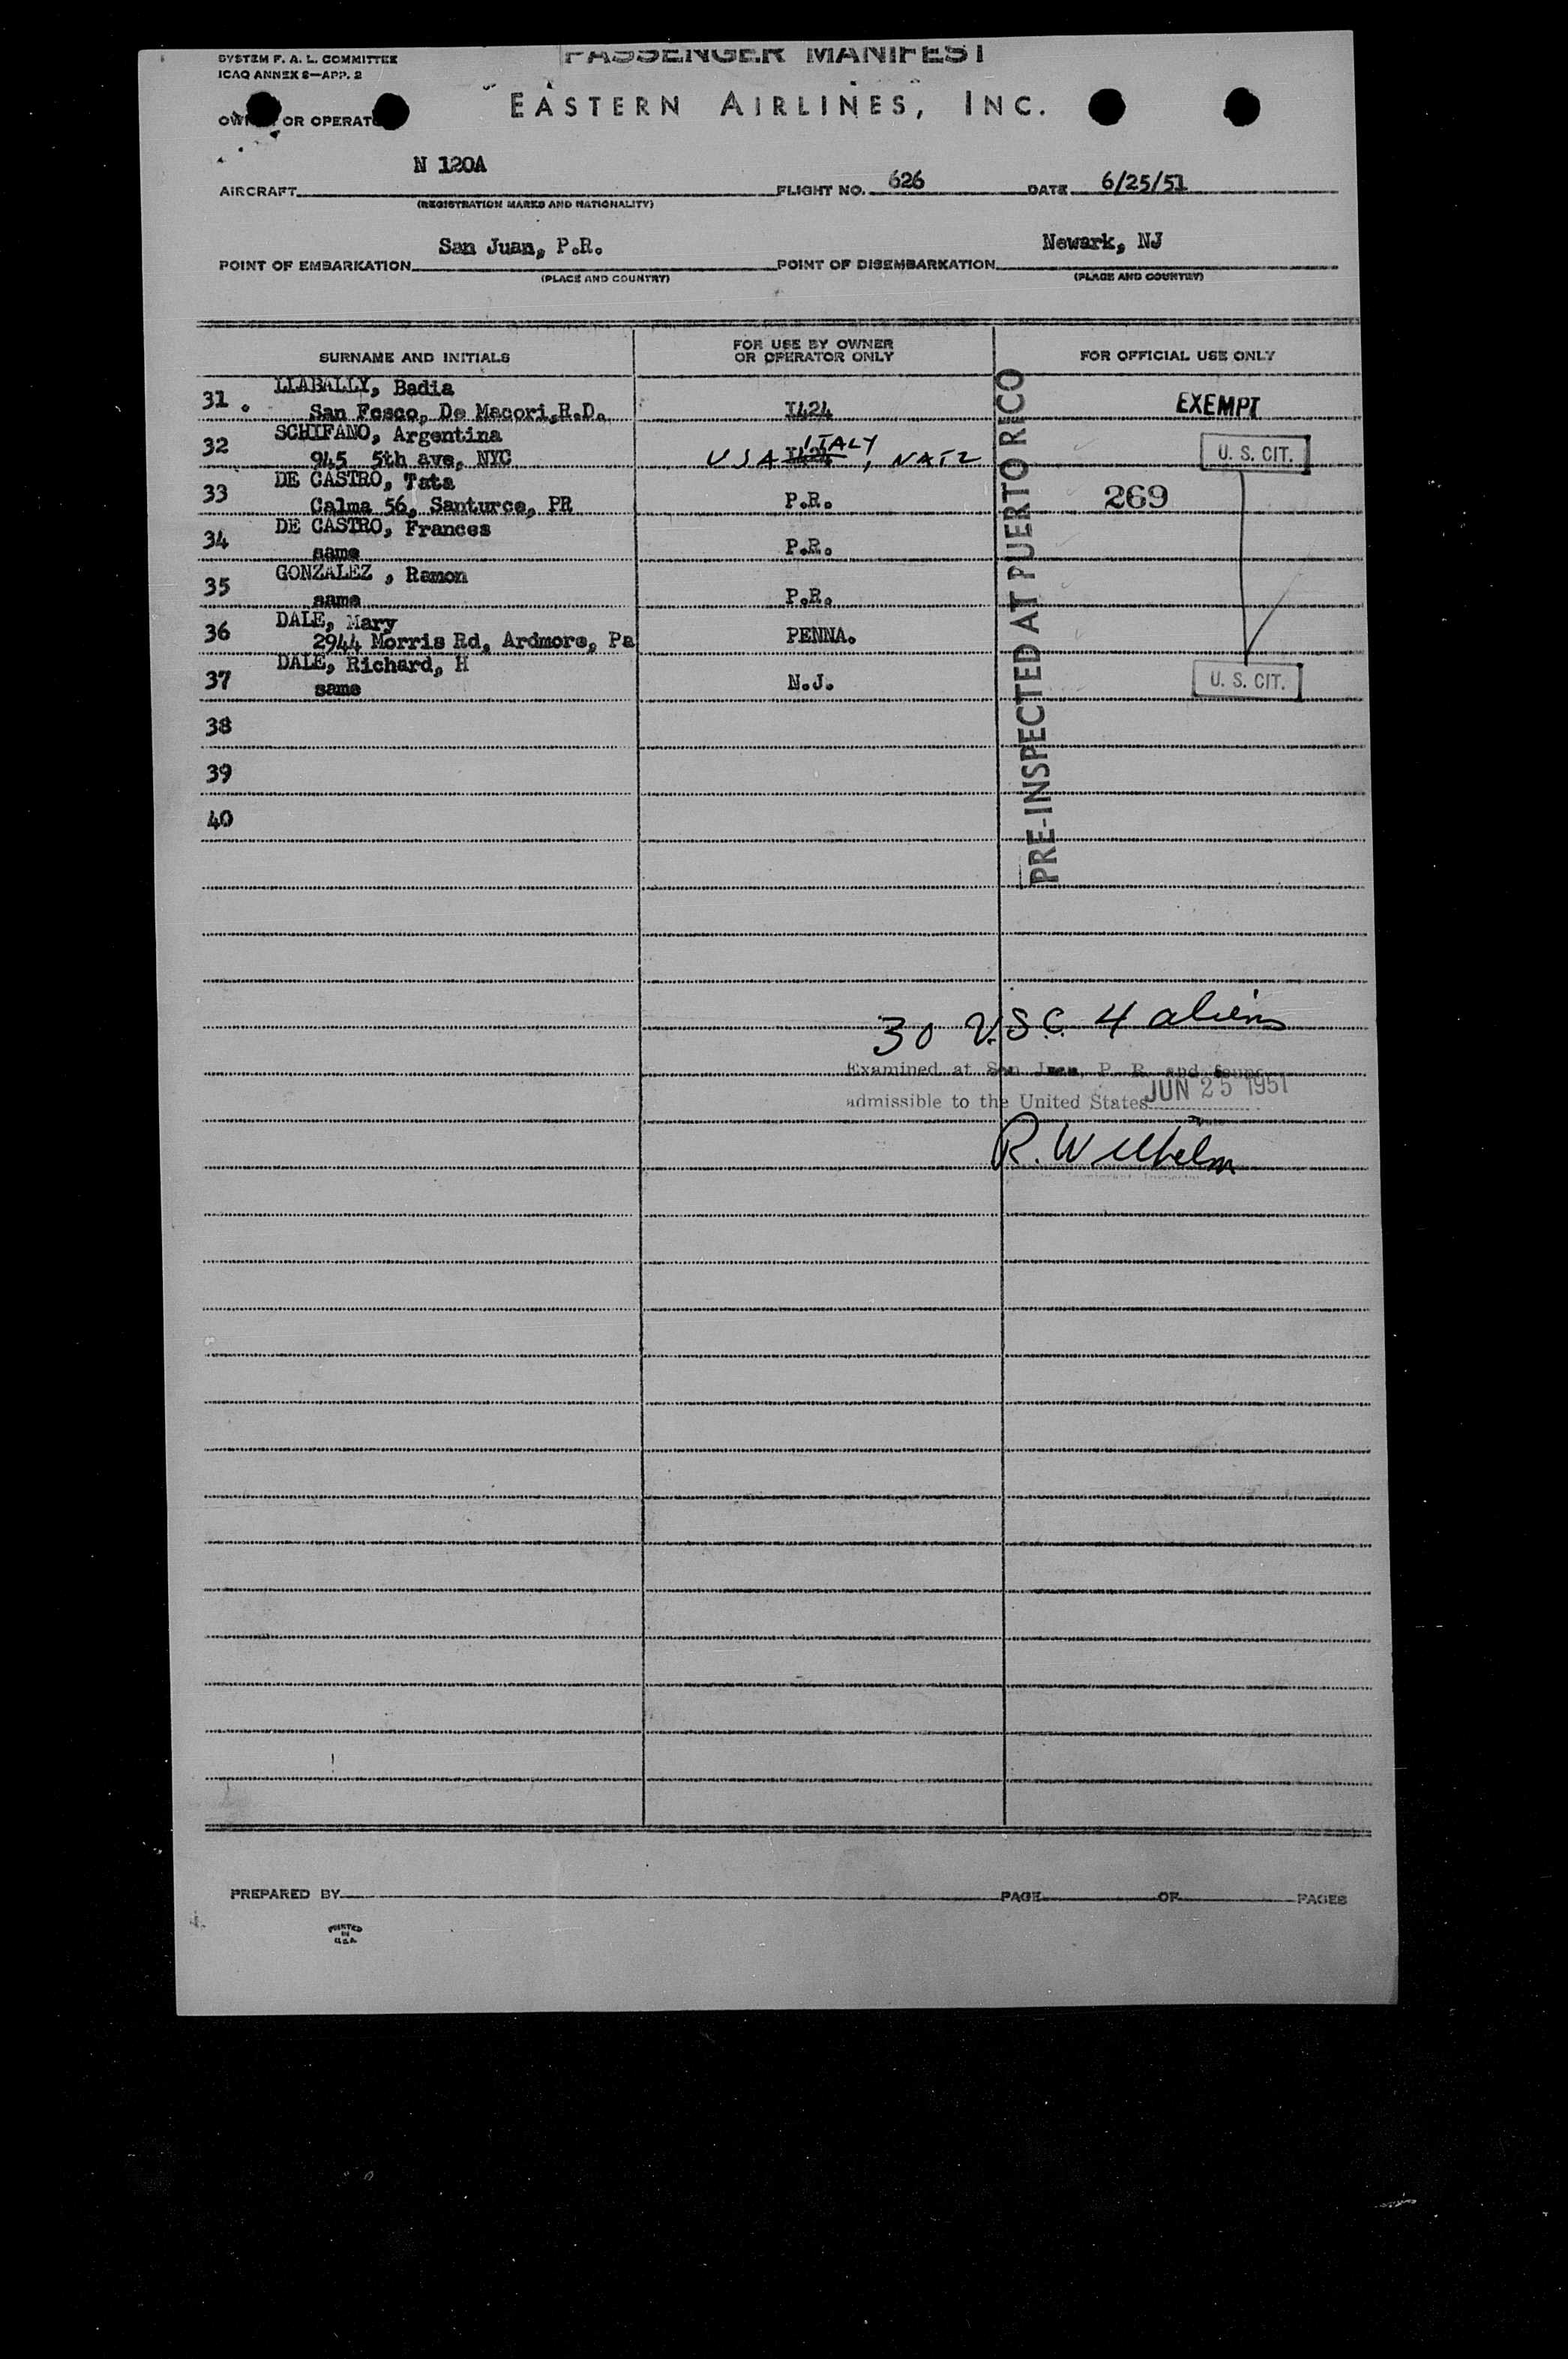 SYSTEM F. A. L. COMMITTEE
ICAO ANNEX 8—APP. 2
PASSENGER MANIFEST
EASTERN AIRLINES, INC.
OR OPERAT
AIRCRAFT N 120A FLIGHT NO. 626 DATE 6/25/51
(REGISTRATION MARKS AND NATIONALITY)
POINT OF EMBARKATION San Juan, P.R. POINT OF DISEMBARKATION Newark, NJ
(PLACE AND COUNTRY) (PLACE AND COUNTRY)
SURNAME AND INITIALS FOR USE BY OWNER OR OPERATOR ONLY FOR OFFICIAL USE ONLY
31 . LLABALLY, Badia
San Fosco, De Macori,R.D. I424 EXEMPT
32 SCHIFANO, Argentina
945 5th ave, NYC USA I424 ITALY, NATZ U. S. CIT.
33 DE CASTRO, Tata
Calma 56, Santurce, PR P.R. 269
34 DE CASTRO, Frances
same P.R.
35 GONZALEZ , Ramon
same P.R.
36 DALE, Mary
2944 Morris Rd, Ardmore, Pa PENNA.
37 DALE, Richard, H
same N.J. U. S. CIT.
38
39
40
PRE-INSPECTED AT PUERTO RICO
30 U.S.C. 4 aliens
Examined at San Juan, P. R. and found
admissible to the United States JUN 25 1951
R. Wilhelm
Immigrant Inspector
PREPARED BY PAGE OF PAGES
PRINTED
IN
U.S.A.